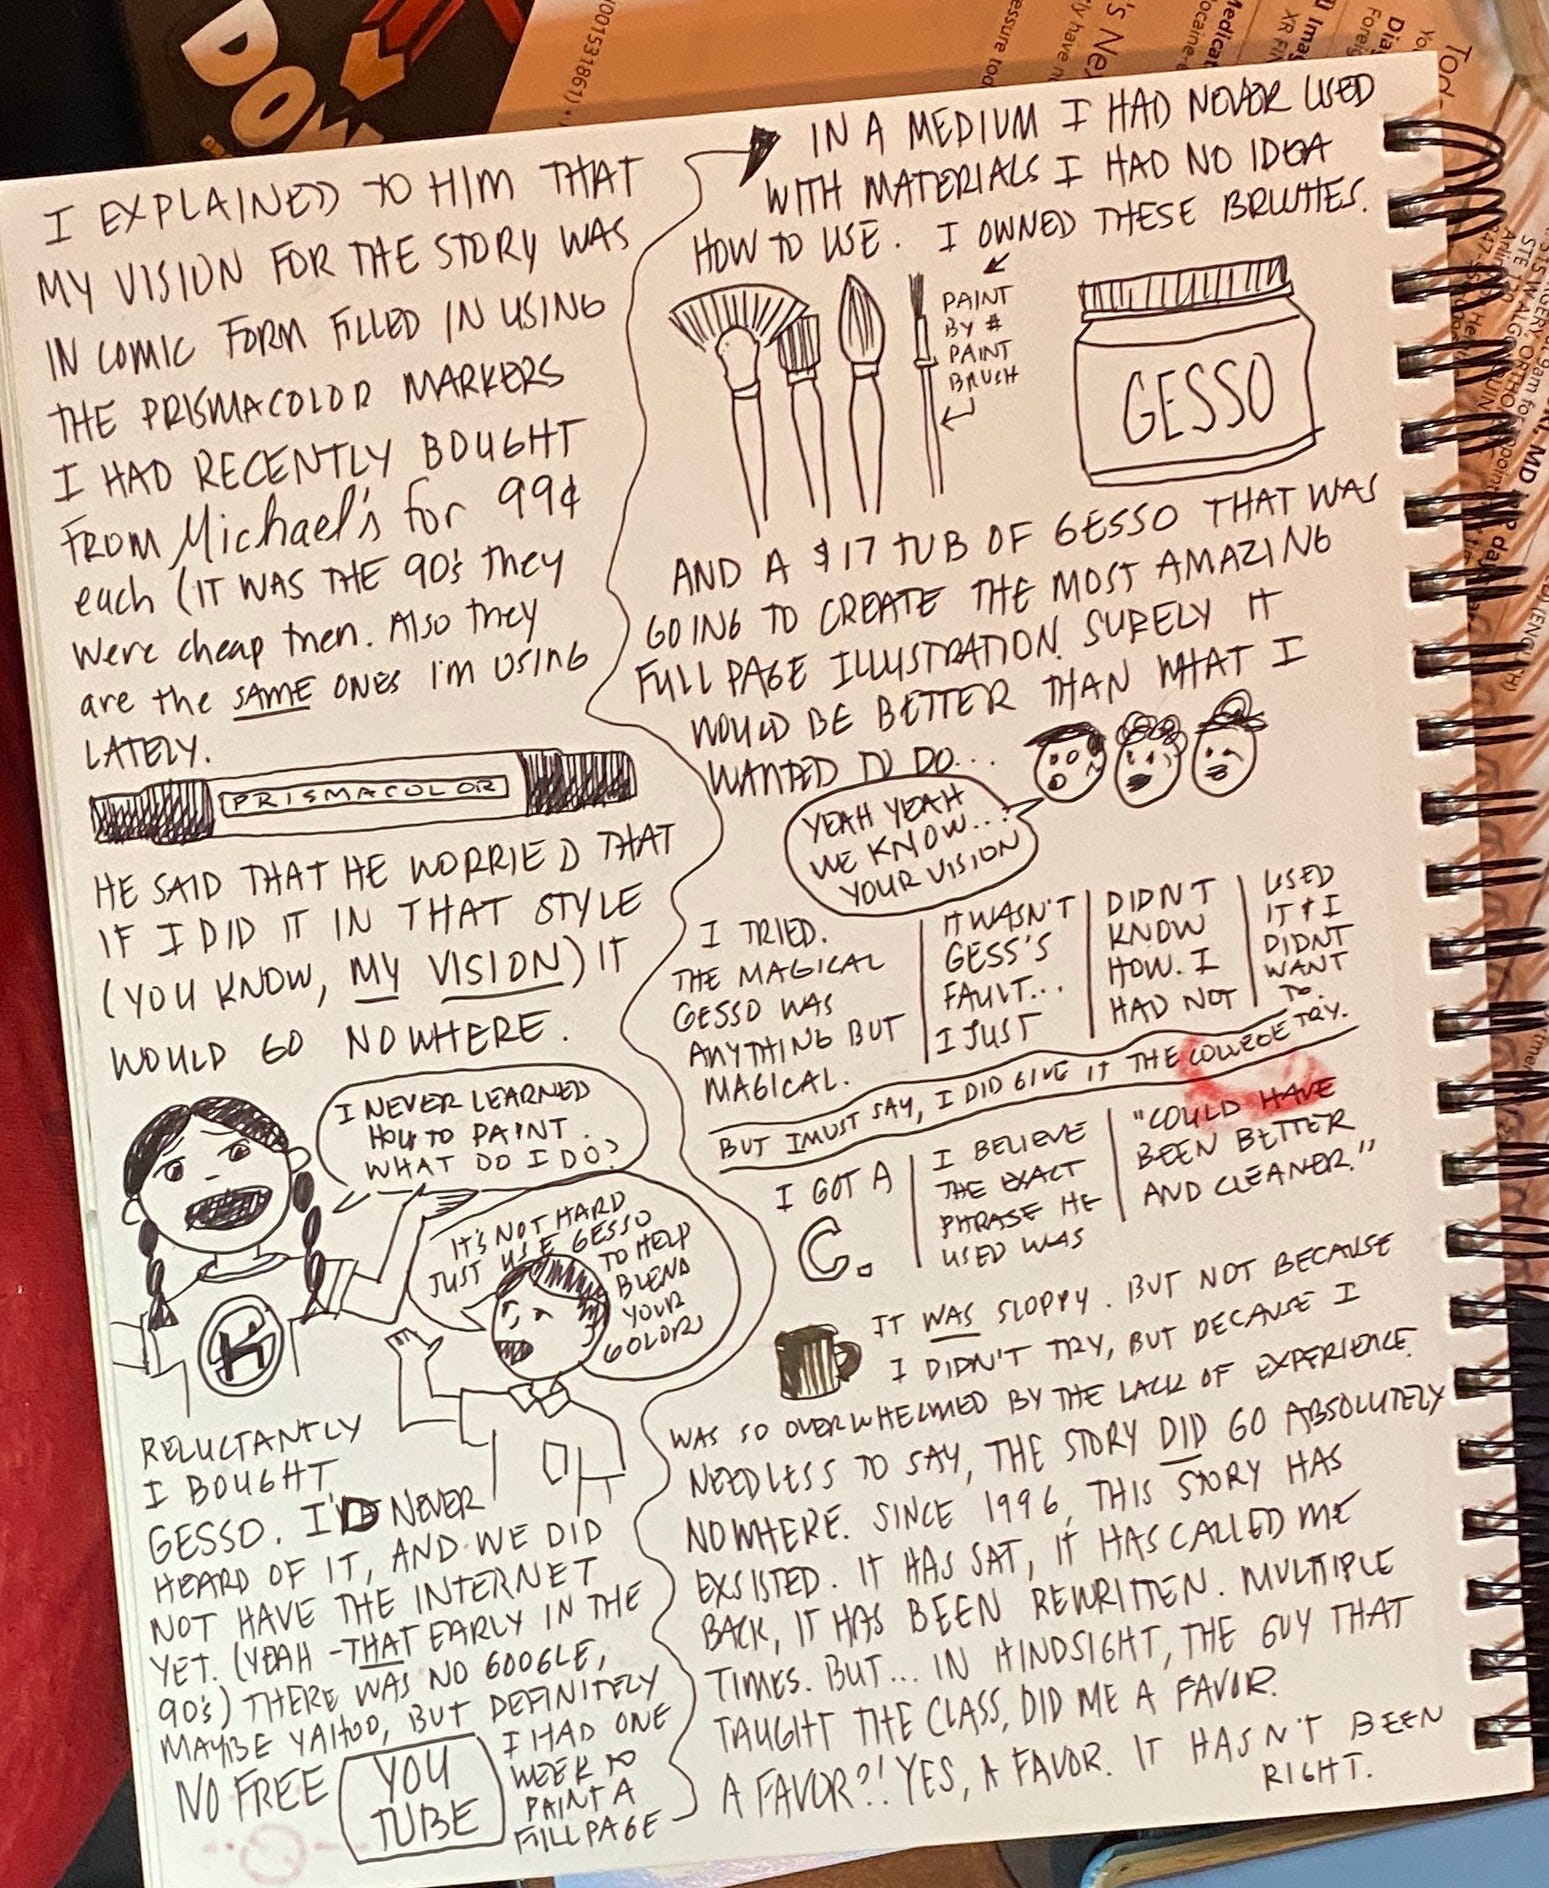 I EXPLAINED TO HIM THAT
MY VISION FOR THE STORY WAS
IN COMIC FORM FILLED IN USING
THE PRISMACOLOR MARKERS
I HAD RECENTLY BOUGHT
FROM Michael's for 99¢
each (IT WAS THE 90's they
were cheap then. Also they
are the SAME ONES I'm USING
LATELY.
PRISMACOLOR
HE SAID THAT HE WORRIED THAT
IF I DID IT IN THAT STYLE
(YOU KNOW, MY VISION) IT
WOULD GO NOWHERE.
I NEVER LEARNED
HOW TO PAINT.
WHAT DO I DO?
IT'S NOT HARD
JUST USE GESSO
TO HELP
BLEND
YOUR
COLORS
K
RELUCTANTLY
I BOUGHT
GESSO. I'D NEVER
HEARD OF IT, AND WE DID
NOT HAVE THE INTERNET
YET. (YEAH - THAT EARLY IN THE
90's) THERE WAS NO GOOGLE,
MAYBE YAHOO, BUT DEFINITELY
NO FREE
YOU
TUBE
I HAD ONE
WEEK TO
PAINT A
FULL PAGE
IN A MEDIUM I HAD NEVER USED
WITH MATERIALS I HAD NO IDEA
HOW TO USE. I OWNED THESE BRUSHES.
PAINT
BY #
PAINT
BRUSH
GESSO
AND A $17 TUB OF GESSO THAT WAS
GOING TO CREATE THE MOST AMAZING
FULL PAGE ILLUSTRATION. SURELY IT
WOULD BE BETTER THAN WHAT I
WANTED TO DO...
YEAH YEAH
WE KNOW...
YOUR VISION
I TRIED.
THE MAGICAL
GESSO WAS
ANYTHING BUT
MAGICAL.
IT WASN'T
GESS'S
FAULT...
I JUST
DIDN'T
KNOW
HOW. I
HAD NOT
USED
IT & I
DIDNT
WANT
TO.
BUT I MUST SAY, I DID GIVE IT THE COLLEGE TRY.
I GOT A
C.
I BELIEVE
THE EXACT
PHRASE HE
USED WAS
"COULD HAVE
BEEN BETTER
AND CLEANER."
IT WAS SLOPPY. BUT NOT BECAUSE
I DIDN'T TRY, BUT BECAUSE I
WAS SO OVERWHELMED BY THE LACK OF EXPERIENCE.
NEEDLESS TO SAY, THE STORY DID GO ABSOLUTELY
NOWHERE. SINCE 1996, THIS STORY HAS
EXSISTED. IT HAS SAT, IT HAS CALLED ME
BACK, IT HAS BEEN REWRITTEN. MULTIPLE
TIMES. BUT... IN HINDSIGHT, THE GUY THAT
TAUGHT THE CLASS, DID ME A FAVOR.
A FAVOR?! YES, A FAVOR. IT HASN'T BEEN
RIGHT.